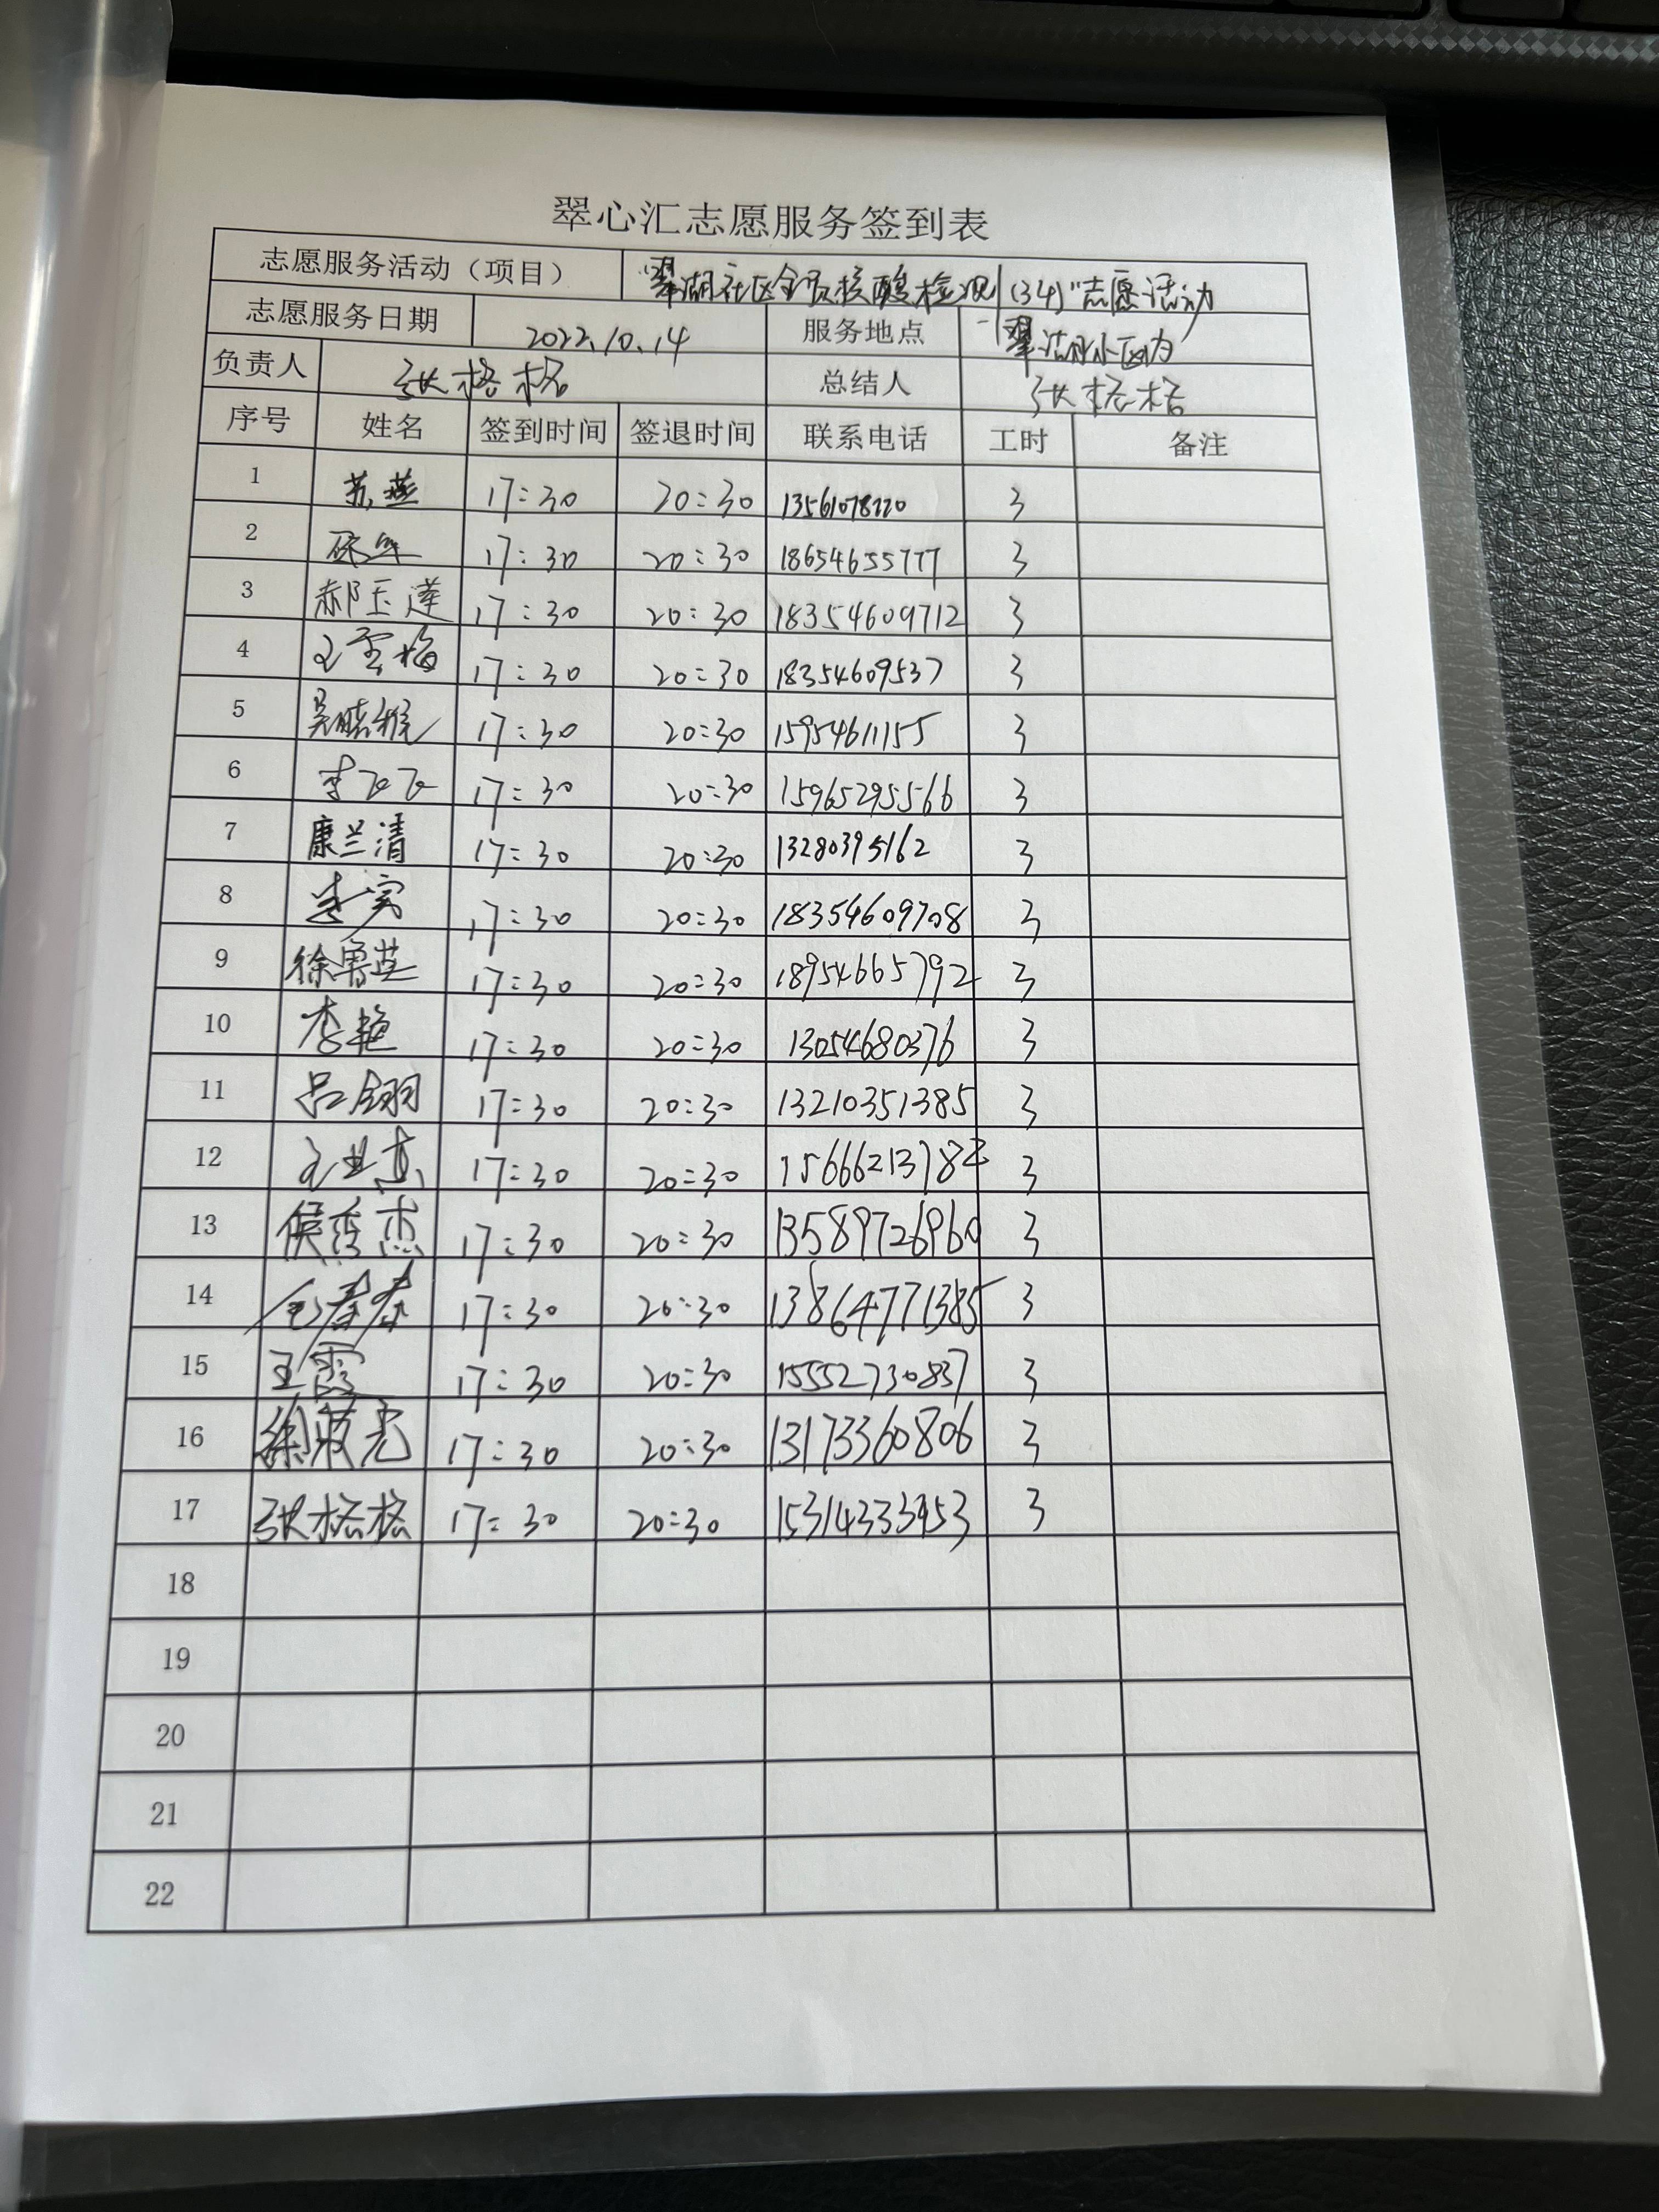 翠心汇志愿服务签到表
志愿服务活动（项目） “翠湖社区全员核酸检测(34)”志愿活动
志愿服务日期 2022.10.14 服务地点 翠湖小区内
负责人 张格格 总结人 张格格
序号 姓名 签到时间 签退时间 联系电话 工时 备注
1 苏燕 17:30 20:30 13561078220 3
2 17:30 20:30 18654655777 3
3 郝玉莲 17:30 20:30 18354609712 3
4 王雪梅 17:30 20:30 18354609537 3
5 17:30 20:30 15954611155 3
6 李飞飞 17:30 20:30 15965295566 3
7 康兰清 17:30 20:30 13280395162 3
8 17:30 20:30 18354609708 3
9 徐鲁燕 17:30 20:30 18954665792 3
10 李艳 17:30 20:30 13054680376 3
11 吕翎 17:30 20:30 13210351385 3
12 17:30 20:30 3
13 侯秀杰 17:30 20:30 13589726960 3
14 17:30 20:30 13864771385 3
15 王霞 17:30 20:30 15552730837 3
16 17:30 20:30 13173360806 3
17 张格格 17:30 20:30 15314333953 3
18
19
20
21
22